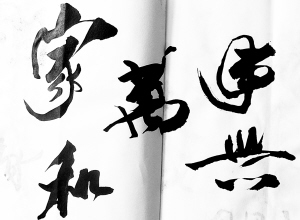 家和
萬
事興